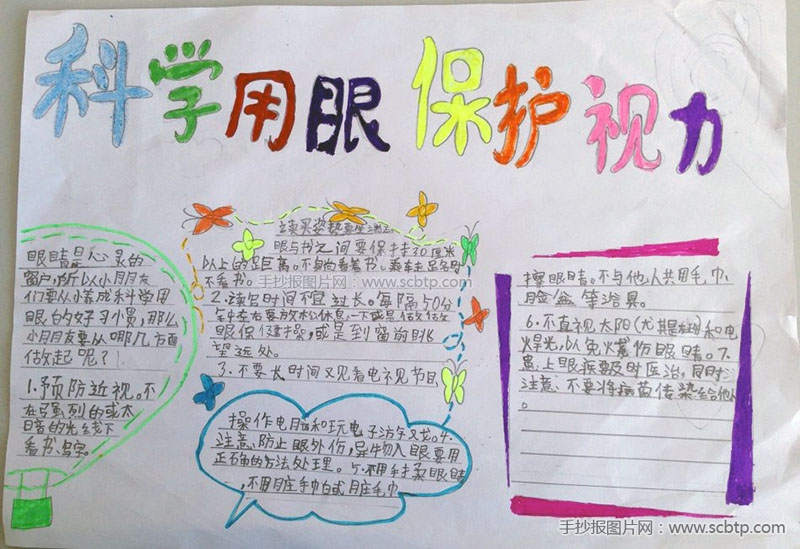 科学用眼 保护视力
眼睛是心灵的
窗户,所以小朋友
们要从小养成科学用
眼的好习惯,那么
小朋友要从哪几方面
做起呢?
1.预防近视。不
在强烈的或太
暗的光线下
看书、写字。
读写姿势要
眼与书之间要保持30厘米
以上的距离。不躺着看书。乘车走路时
不看书。
2.读写时间不宜过长。每隔50分
钟左右要放松休息一下或是做做
眼保健操,或是到窗前眺
望远处。
3.不要长时间又见看电视节目
操作电脑和玩电子游戏。4.
注意、防止眼外伤,异物入眼要用
正确的方法处理。5.不用手揉眼睛
,不用脏手巾或脏毛巾
擦眼睛。不与他人共用毛巾、
脸盆等浴具。
6.不直视太阳(尤其是)和电
焊光,以免灼伤眼睛。7.
患上眼疾要及时医治,同时
注意:不要将病菌传染给他人
。
手抄报图片网:www.scbtp.com